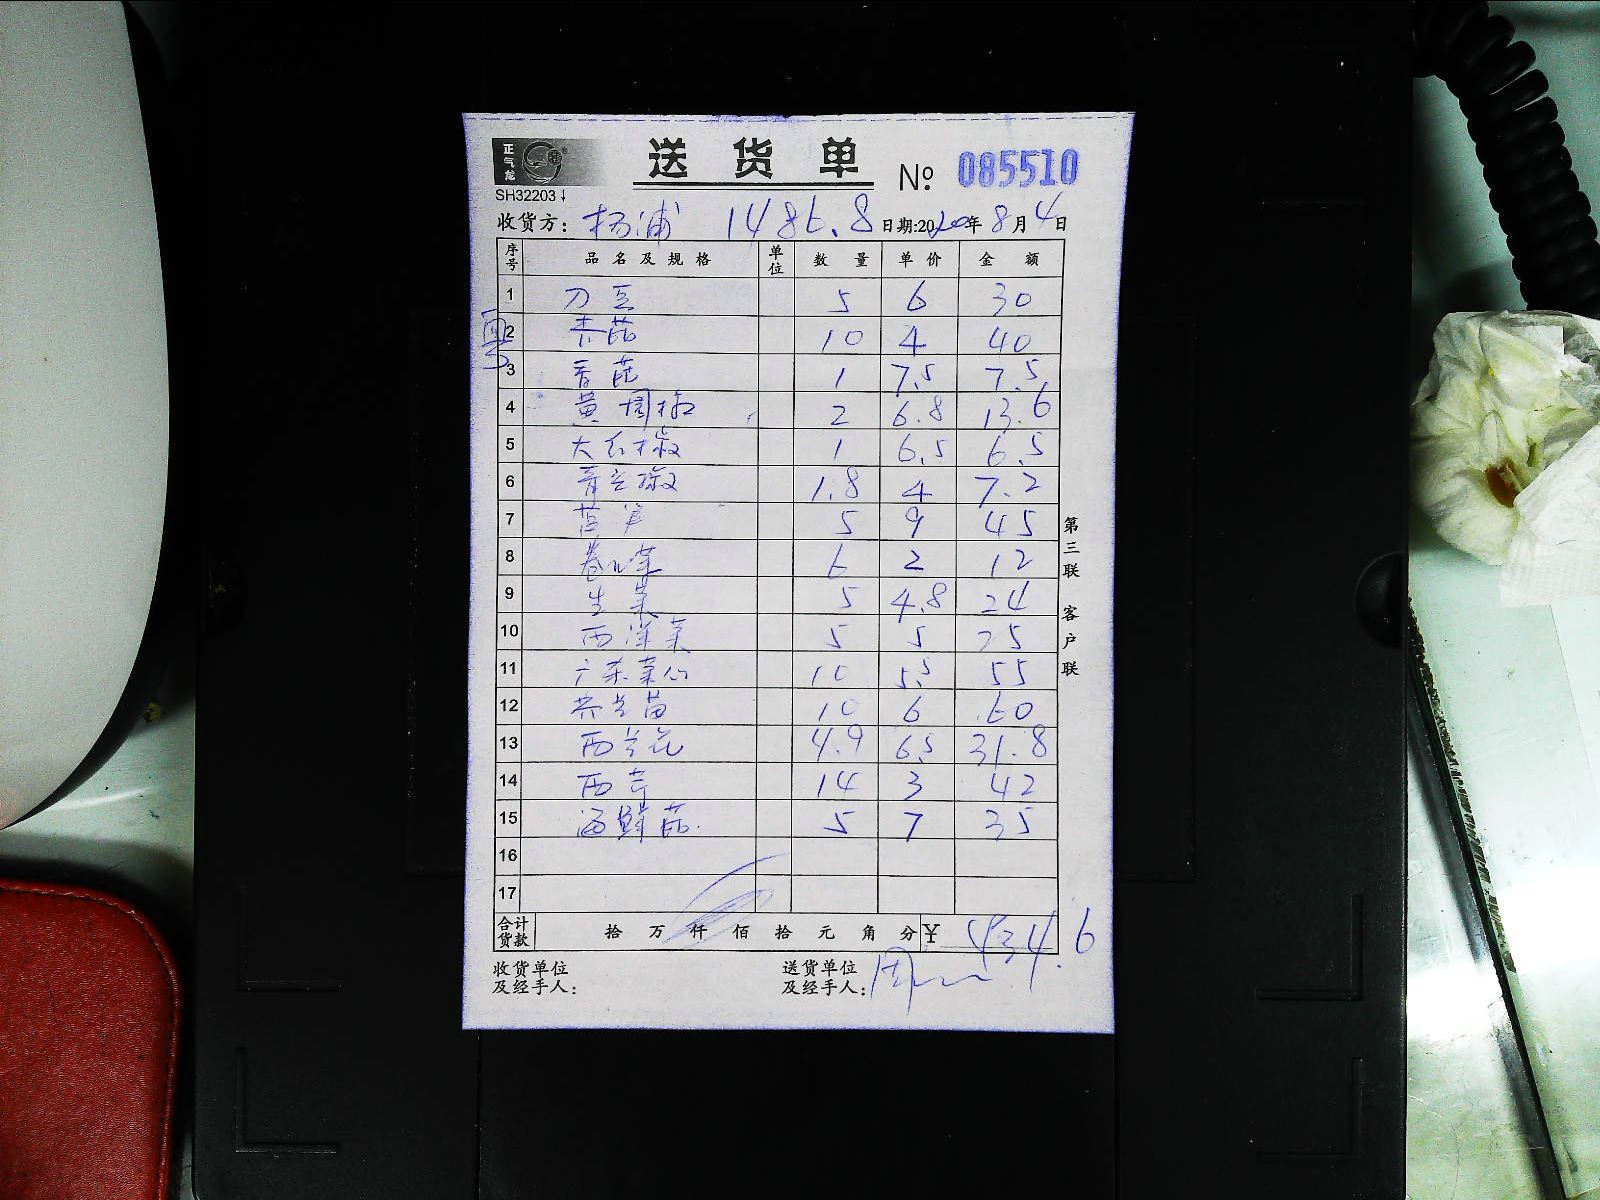 正气龙
送货单 № 085510
SH32203↓
收货方: 杨浦 1486.8 日期:2020年8月4日
序号 品名及规格 单位 数量 单价 金额
1 刀豆 5 6 30
2 杏菇 10 4 40
3 香菇 1 7.5 7.5
4 黄圆椒 2 6.8 13.6
5 大红椒 1 6.5 6.5
6 青尖椒 1.8 4 7.2
7 莴笋 5 9 45
8 卷心菜 6 2 12
9 生菜 5 4.8 24
10 西洋菜 5 5 25
11 广东菜心 10 5.5 55
12 芥兰苗 10 6 60
13 西兰花 4.9 6.5 31.8
14 西芹 14 3 42
15 海鲜菇 5 7 35
16
17
合计货款 拾 万 仟 佰 拾 元 角 分 ¥ 434.6
收货单位及经手人:
送货单位及经手人: 周
第三联 客户联